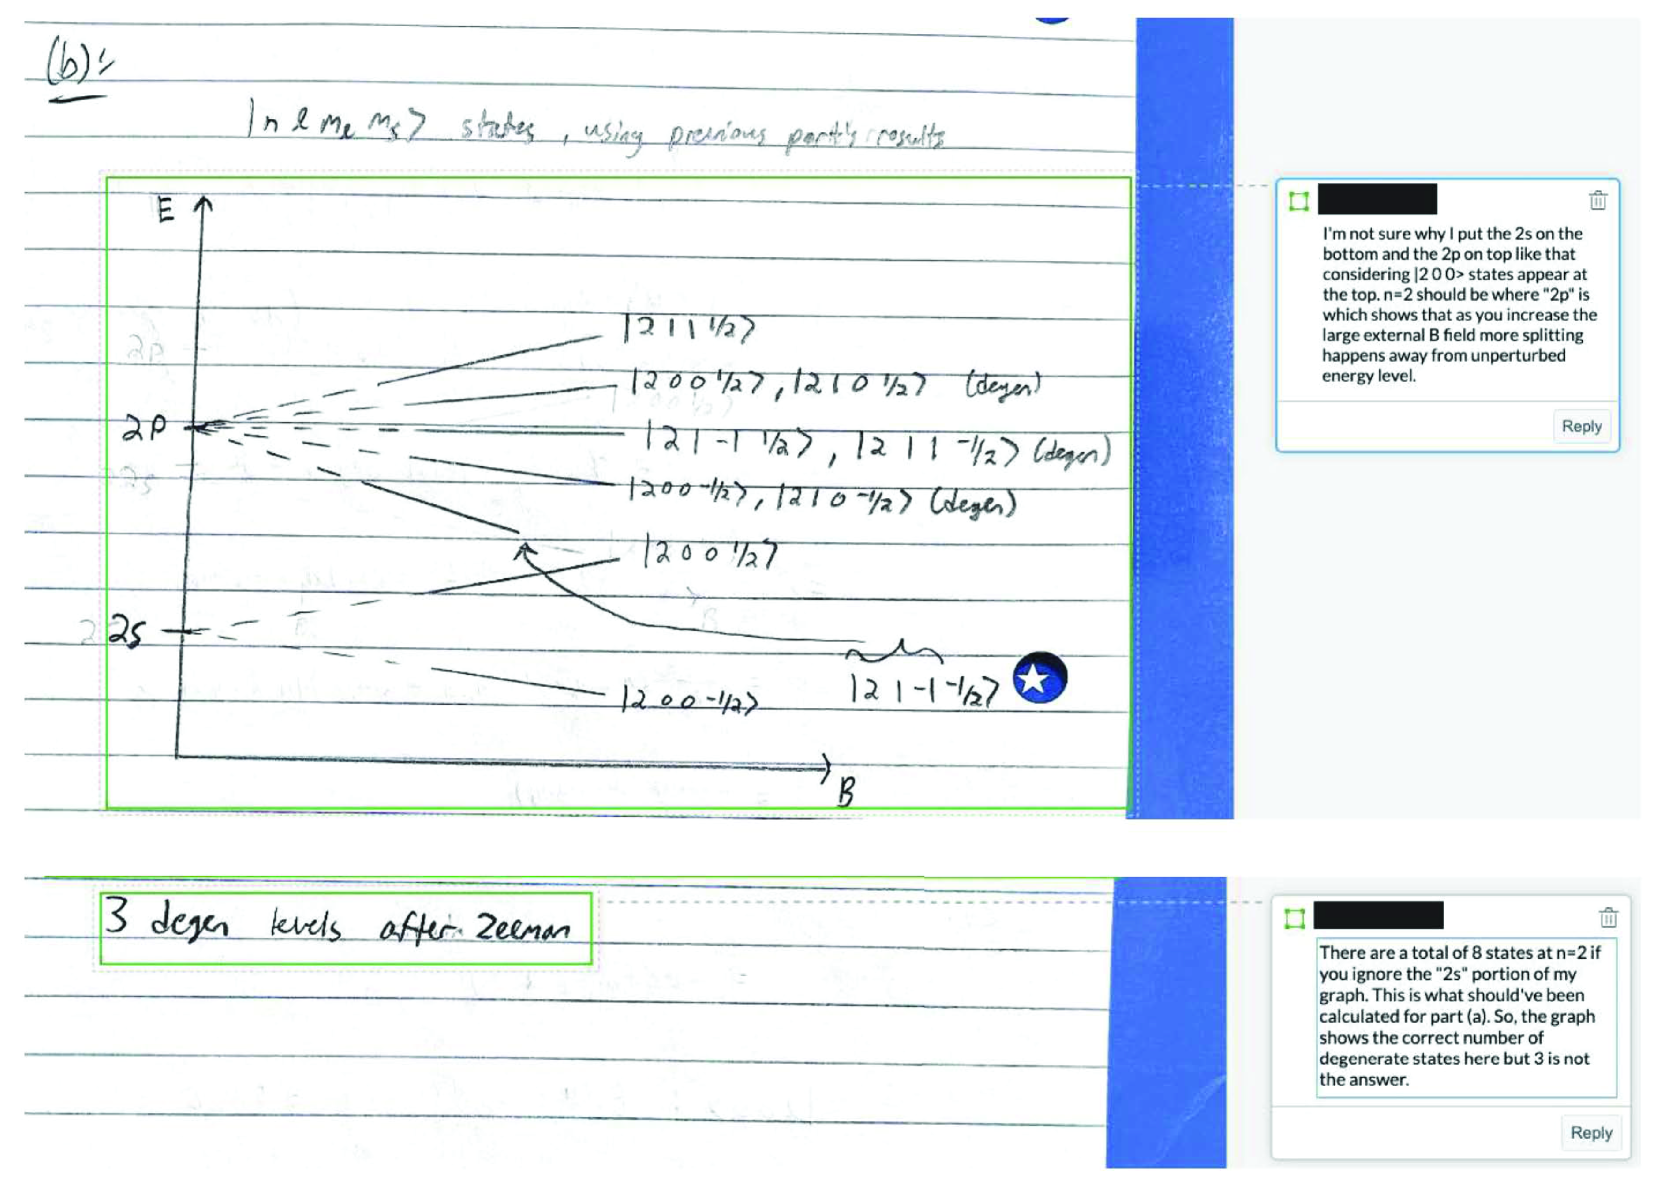 (b):
|n l mₗ mₛ> states, using previous part's results
E
|2 1 1 1/2>
|2 0 0 1/2>, |2 1 0 1/2> (degen)
2p
|2 1 -1 1/2>, |2 1 1 -1/2> (degen)
|2 0 0 -1/2>, |2 1 0 -1/2> (degen)
|2 0 0 1/2>
2s
|2 1 -1 -1/2>
|2 0 0 -1/2>
B
I'm not sure why I put the 2s on the
bottom and the 2p on top like that
considering |2 0 0> states appear at
the top. n=2 should be where "2p" is
which shows that as you increase the
large external B field more splitting
happens away from unperturbed
energy level.
Reply
3 degen levels after Zeeman
There are a total of 8 states at n=2 if
you ignore the "2s" portion of my
graph. This is what should've been
calculated for part (a). So, the graph
shows the correct number of
degenerate states here but 3 is not
the answer.
Reply